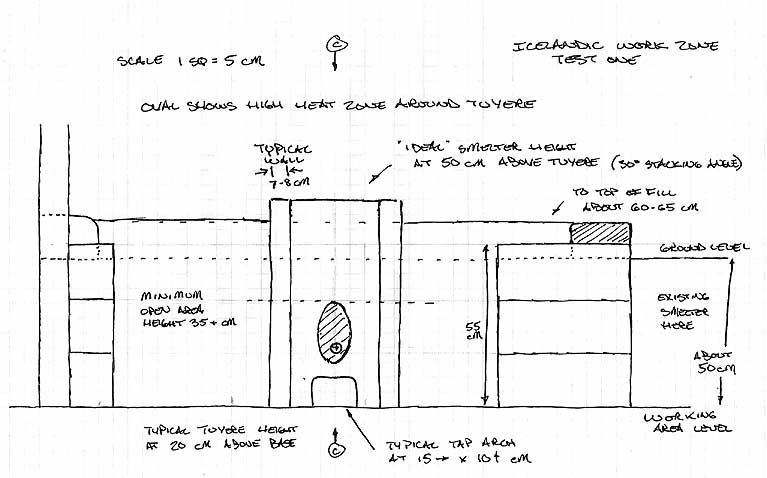 C
ICELANDIC WORK ZONE
TEST ONE
SCALE 1 SQ = 5 CM
OVAL SHOWS HIGH HEAT ZONE AROUND TUYERE
TYPICAL
WALL
7-8 CM
"IDEAL" SMELTER HEIGHT
AT 50 CM ABOVE TUYERE (30° STACKING ANGLE)
TO TOP OF FILL
ABOUT 60-65 CM
GROUND LEVEL
MINIMUM
OPEN AREA
HEIGHT 35+ CM
55
CM
EXISTING
SMELTER
HERE
ABOUT
50 CM
WORKING
AREA LEVEL
TYPICAL TUYERE HEIGHT
AT 20 CM ABOVE BASE
C
TYPICAL TAP ARCH
AT 15 x 10+ CM